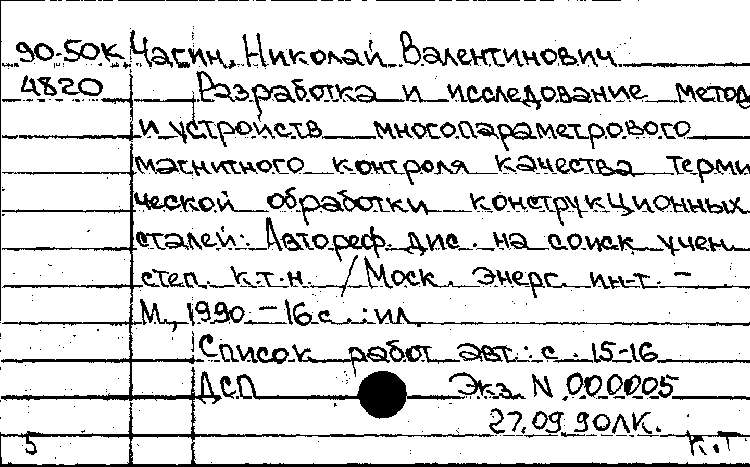 90-50К Чагин, Николай Валентинович
4820 Разработка и исследование метод
и устройств многопараметрового
магнитного контроля качества терми
ческой обработки конструкционных
сталей: Автореф. дис. на соиск учен
степ. к.т.н. / Моск. энерг. ин-т. –
М., 1990. – 16 с. : ил.
Список работ авт.: с. 15-16
ДСП Экз. N 000005
27.09.90ЛК.
5 К.Т